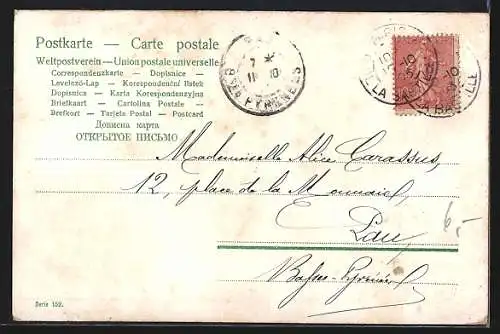 Postkarte — Carte postale
Weltpostverein — Union postale universelle
Correspondenzkarte — Dopisnice —
Levelező-Lap — Korespondenční lístek
Dopisnica — Karta Korespondenzyjna
Briefkaart — Cartolina Postale —
Brefkort — Tarjeta Postal — Postcard
Дописна карта
ОТКРЫТОЕ ПИСЬМО
7 *
11 10
BSES PYRENEES
LA
Mademoiselle Alice Carassus,
12, place de la Monnaie,
Pau,
Basses-Pyrénées
6,-
Serie 159.